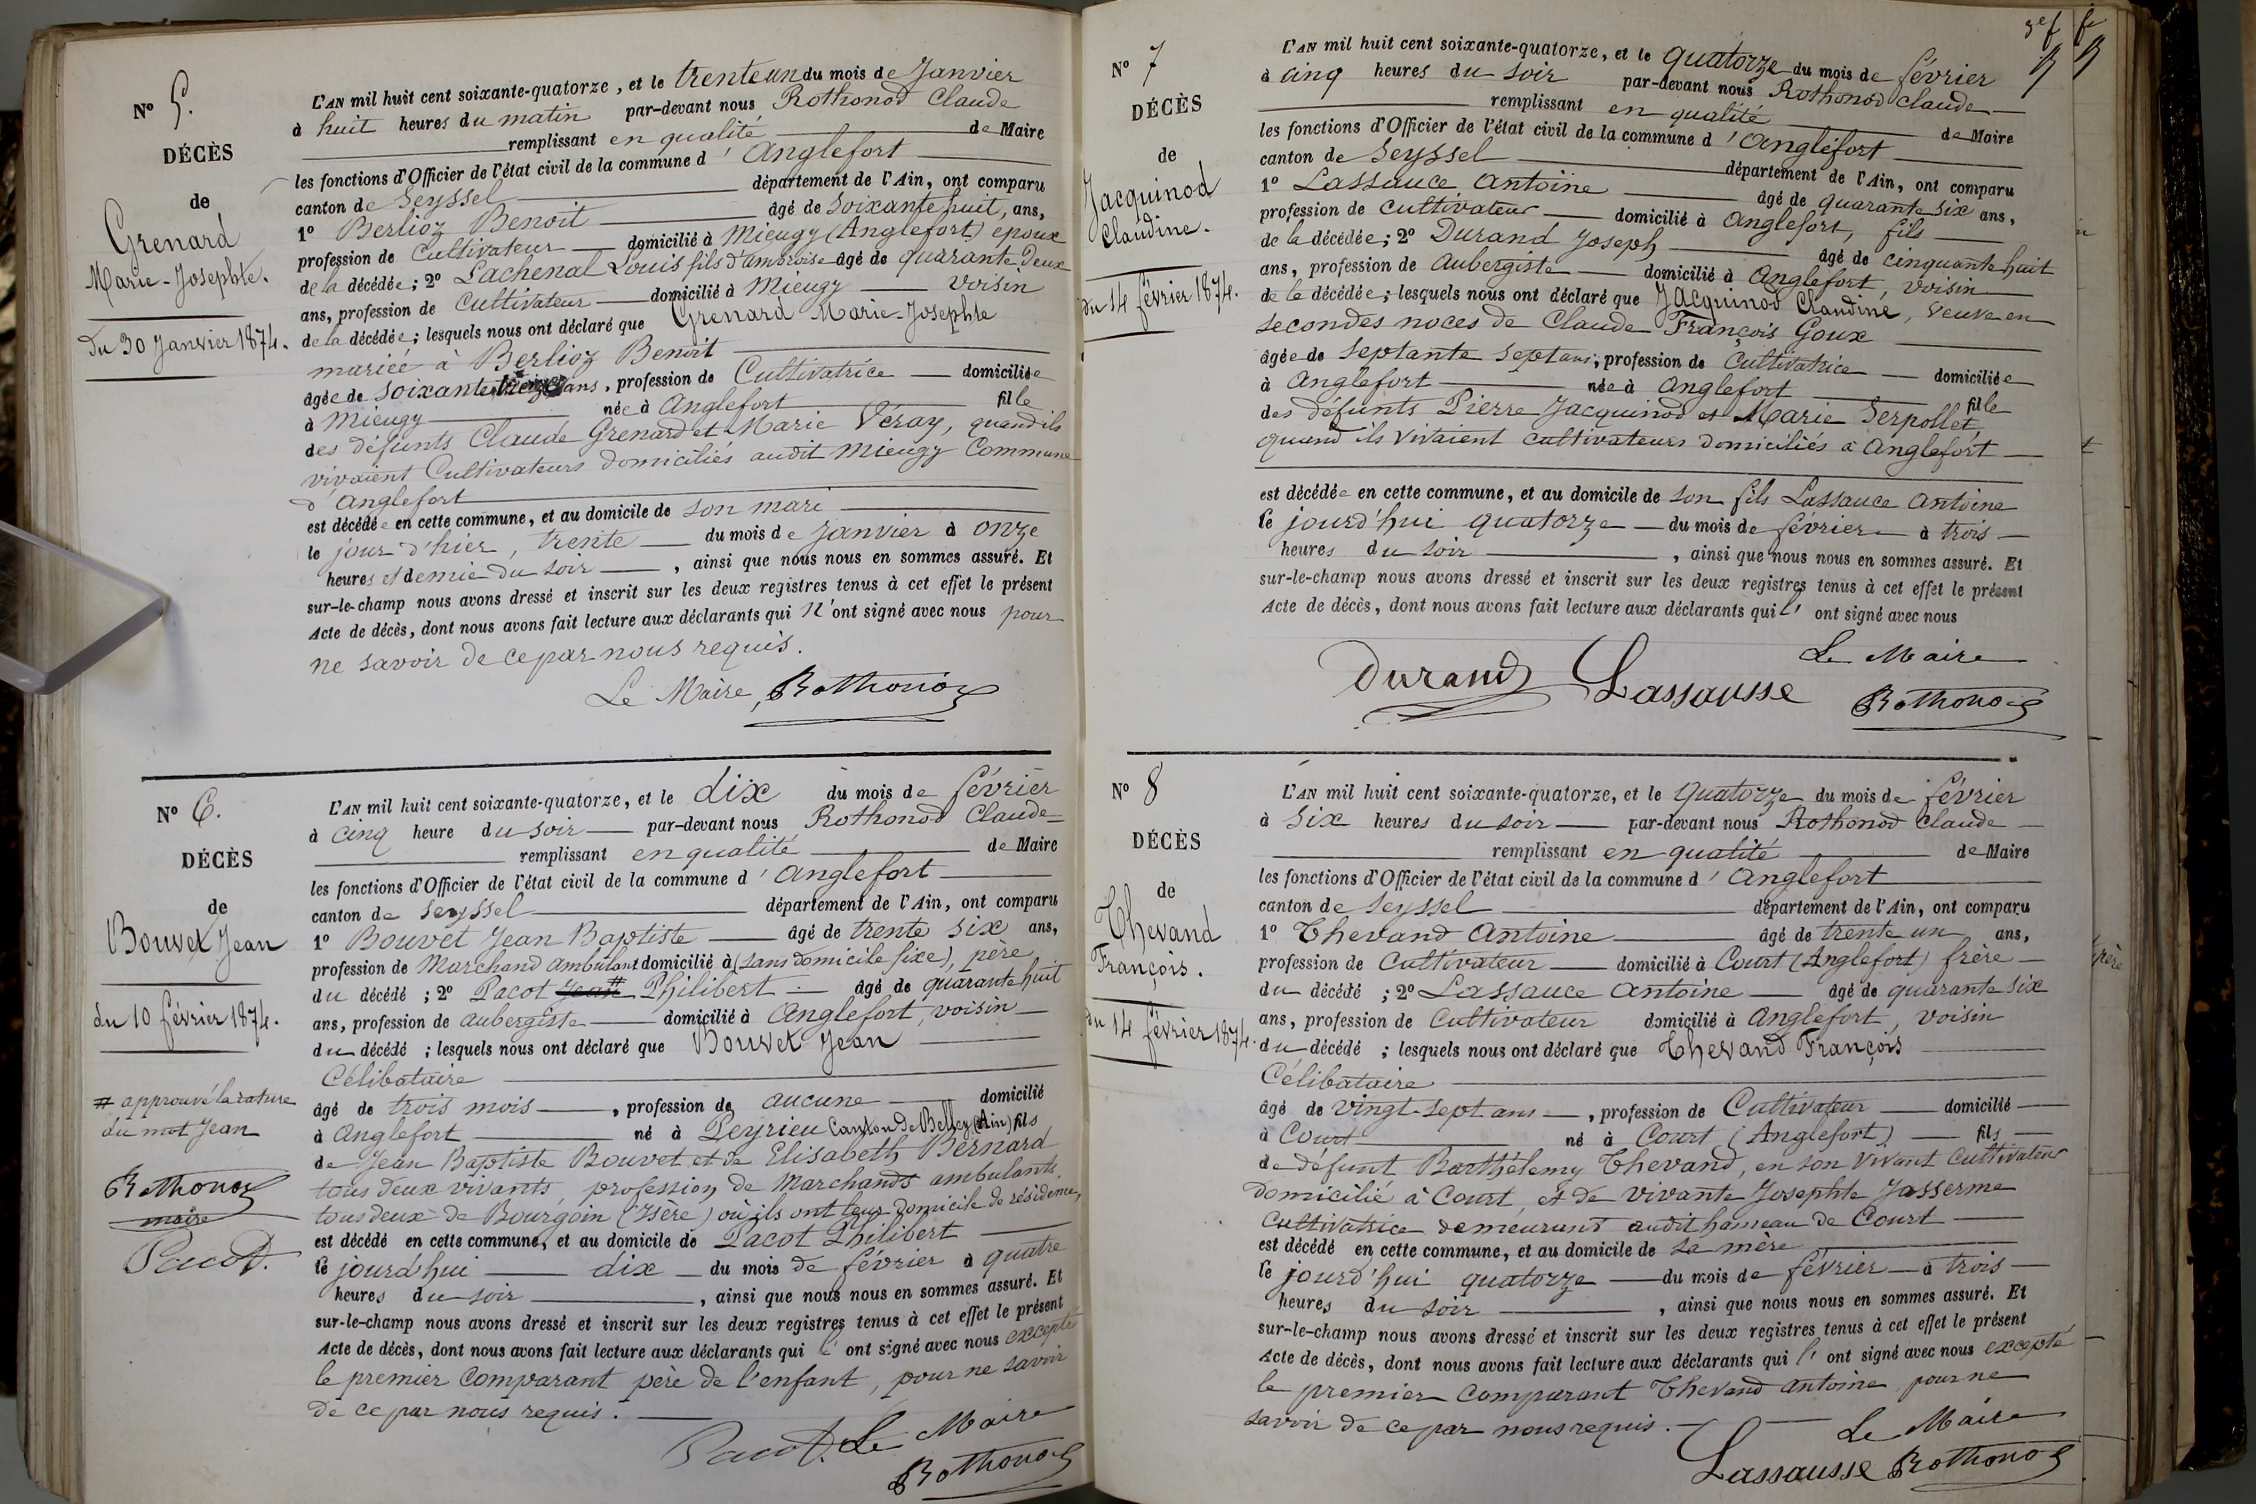 N° 5.
DÉCÈS
de
Grenard
Marie-Josephte.
du 30 Janvier 1874.
L'AN mil huit cent soixante-quatorze, et le trente un du mois de Janvier
à huit heures du matin par-devant nous Rothonod Claude
remplissant en qualité de Maire
les fonctions d'Officier de l'état civil de la commune d'Anglefort
canton de Seyssel département de l'Ain, ont comparu
1° Berlioz Benoit âgé de soixante huit, ans,
profession de Cultivateur domicilié à Mieugy (Anglefort) epoux
de la décédée; 2° Lachenal Louis fils d'ambroise âgé de quarante deux
ans, profession de Cultivateur domicilié à Mieugy voisin
de la décédée; lesquels nous ont déclaré que Grenard Marie-Josephte
mariée à Berlioz Benoit
âgée de soixante ans, profession de Cultivatrice domiciliée
à Mieugy née à Anglefort fille
des défunts Claude Grenard et Marie Véray, quand ils
vivaient Cultivateurs domiciliés audit Mieugy Commune
d'Anglefort
est décédée en cette commune, et au domicile de son mari
le jour d'hier, trente du mois de Janvier à onze
heures et demie du soir, ainsi que nous nous en sommes assuré. Et
sur-le-champ nous avons dressé et inscrit sur les deux registres tenus à cet effet le présent
Acte de décès, dont nous avons fait lecture aux déclarants qui n'ont signé avec nous pour
ne savoir de ce par nous requis.
Le Maire, Rothonod
N° 6.
DÉCÈS
de
Bouvet Jean
du 10 février 1874.
# approuvé la rature
du mot Jean
Rothonod
maire
Pacot.
L'AN mil huit cent soixante-quatorze, et le dix du mois de février
à cinq heure du soir par-devant nous Rothonod Claude
remplissant en qualité de Maire
les fonctions d'Officier de l'état civil de la commune d'Anglefort
canton de Seyssel département de l'Ain, ont comparu
1° Bouvet Jean Baptiste âgé de trente six ans,
profession de Marchand ambulant domicilié à (sans domicile fixe), père
du décédé; 2° Pacot Jean # Philibert âgé de quarante huit
ans, profession de aubergiste domicilié à Anglefort, voisin
du décédé; lesquels nous ont déclaré que Bouvet Jean
Célibataire
âgé de trois mois, profession de aucune domicilié
à Anglefort né à Peyrieu Canton de Belley (Ain) fils
de Jean Baptiste Bouvet et de Elisabeth Bernard
tous deux vivants, profession de Marchands ambulants,
tous deux de Bourgoin (Isère) où ils ont leur domicile de résidence,
est décédé en cette commune, et au domicile de Pacot Philibert
le jourd'hui dix du mois de février à quatre
heures du soir, ainsi que nous nous en sommes assuré. Et
sur-le-champ nous avons dressé et inscrit sur les deux registres tenus à cet effet le présent
Acte de décès, dont nous avons fait lecture aux déclarants qui l'ont signé avec nous excepté
le premier comparant père de l'enfant, pour ne savoir
de ce par nous requis.
Pacot. Le Maire
Rothonod
3e f
N° 7
DÉCÈS
de
Jacquinod
Claudine.
du 14 février 1874.
L'AN mil huit cent soixante-quatorze, et le quatorze du mois de février
à cinq heures du soir par-devant nous Rothonod Claude
remplissant en qualité de Maire
les fonctions d'Officier de l'état civil de la commune d'Anglefort
canton de Seyssel département de l'Ain, ont comparu
1° Lassauce Antoine âgé de quarante six ans,
profession de cultivateur domicilié à Anglefort, fils
de la décédée; 2° Durand Joseph âgé de cinquante huit
ans, profession de Aubergiste domicilié à Anglefort, voisin
de la décédée; lesquels nous ont déclaré que Jacquinod Claudine, veuve en
secondes noces de Claude François Goux
âgée de septante sept ans, profession de Cultivatrice domiciliée
à Anglefort née à Anglefort fille
des défunts Pierre Jacquinod et Marie Serpollet,
quand ils vivaient cultivateurs domiciliés à Anglefort
est décédée en cette commune, et au domicile de son fils Lassauce Antoine
le jourd'hui quatorze du mois de février à trois
heures du soir, ainsi que nous nous en sommes assuré. Et
sur-le-champ nous avons dressé et inscrit sur les deux registres tenus à cet effet le présent
Acte de décès, dont nous avons fait lecture aux déclarants qui l'ont signé avec nous
Le Maire
Durand Lassausse Rothonod
N° 8
DÉCÈS
de
Thevand
François.
du 14 février 1874.
L'AN mil huit cent soixante-quatorze, et le quatorze du mois de février
à six heures du soir par-devant nous Rothonod Claude
remplissant en qualité de Maire
les fonctions d'Officier de l'état civil de la commune d'Anglefort
canton de Seyssel département de l'Ain, ont comparu
1° Thevand Antoine âgé de trente un ans,
profession de Cultivateur domicilié à Court (Anglefort) frère
du décédé; 2° Lassauce Antoine âgé de quarante six
ans, profession de Cultivateur domicilié à Anglefort, voisin
du décédé; lesquels nous ont déclaré que Thevand François
Célibataire
âgé de vingt-sept ans, profession de Cultivateur domicilié
à Court né à Court (Anglefort) fils
de défunt Barthélemy Thevand, en son vivant cultivateur
domicilié à Court, et de vivante Josephte Jasserme
cultivatrice demeurant audit hameau de Court
est décédé en cette commune, et au domicile de sa mère
le jourd'hui quatorze du mois de février à trois
heures du soir, ainsi que nous nous en sommes assuré. Et
sur-le-champ nous avons dressé et inscrit sur les deux registres tenus à cet effet le présent
Acte de décès, dont nous avons fait lecture aux déclarants qui l'ont signé avec nous excepté
le premier comparant Thevand Antoine pour ne
savoir de ce par nous requis.
Le Maire
Lassausse Rothonod